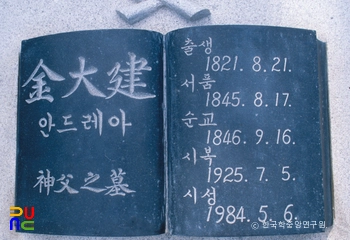 金大建
안드레아
神父之墓
출생
1821. 8. 21.
서품
1845. 8. 17.
순교
1846. 9. 16.
시복
1925. 7. 5.
시성
1984. 5. 6.
© 한국학중앙연구원